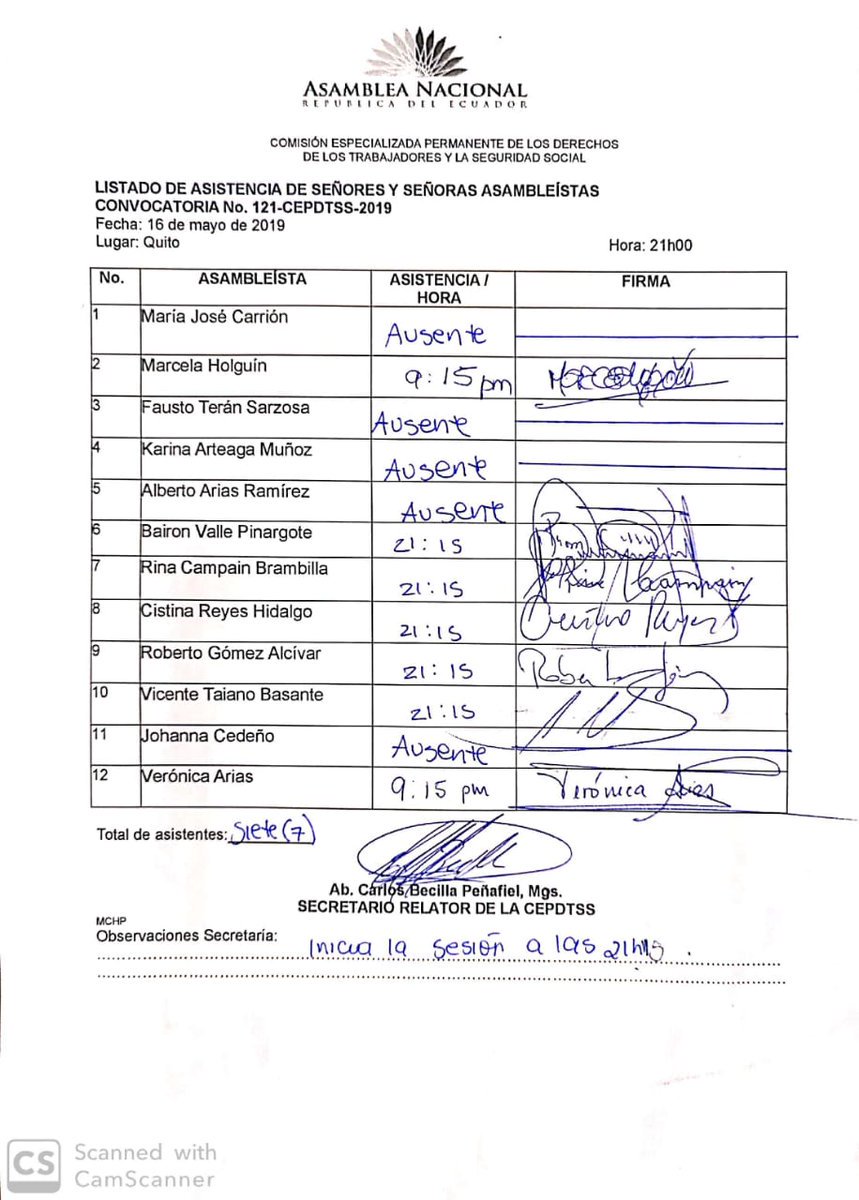 ASAMBLEA NACIONAL
REPUBLICA DEL ECUADOR
COMISIÓN ESPECIALIZADA PERMANENTE DE LOS DERECHOS
DE LOS TRABAJADORES Y LA SEGURIDAD SOCIAL
LISTADO DE ASISTENCIA DE SEÑORES Y SEÑORAS ASAMBLEÍSTAS
CONVOCATORIA No. 121-CEPDTSS-2019
Fecha: 16 de mayo de 2019
Lugar: Quito Hora: 21h00
No. ASAMBLEÍSTA ASISTENCIA / HORA FIRMA
1 María José Carrión Ausente
2 Marcela Holguín 9:15 pm
3 Fausto Terán Sarzosa Ausente
4 Karina Arteaga Muñoz Ausente
5 Alberto Arias Ramírez Ausente
6 Bairon Valle Pinargote 21:15
7 Rina Campain Brambilla 21:15 Rina Campain
8 Cistina Reyes Hidalgo 21:15
9 Roberto Gómez Alcívar 21:15
10 Vicente Taiano Basante 21:15
11 Johanna Cedeño Ausente
12 Verónica Arias 9:15 pm Verónica Arias
Total de asistentes: Siete (7)
Ab. Carlos Becilla Peñafiel, Mgs.
SECRETARIO RELATOR DE LA CEPDTSS
MCHP
Observaciones Secretaría: Inicia la sesión a las 21h15.
CS Scanned with
CamScanner